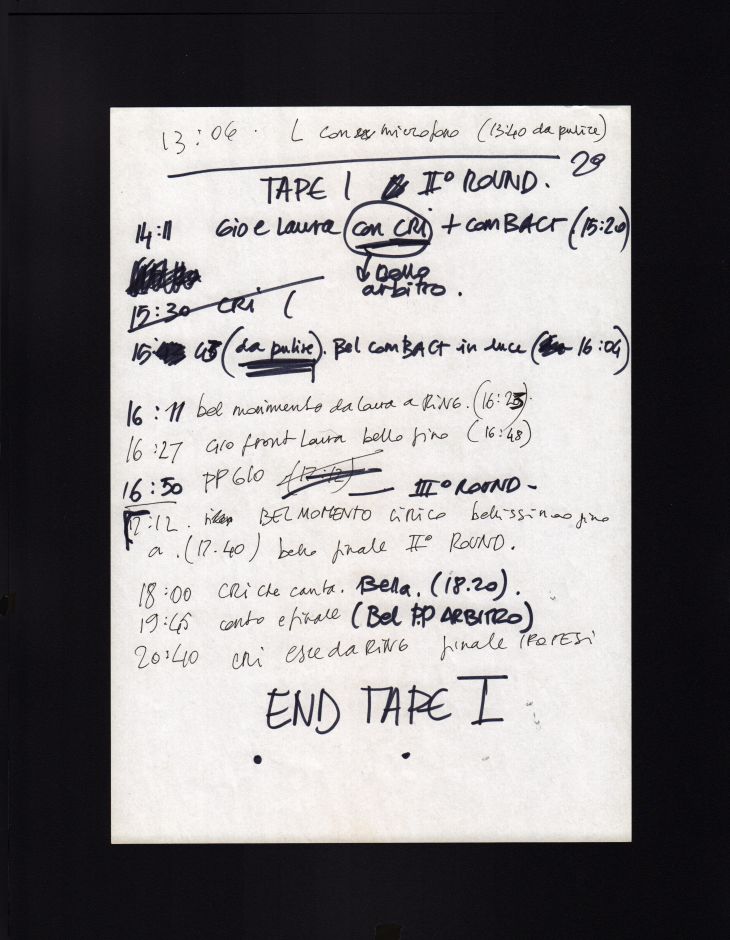 13:06. L con microfono (13:40 da pulire)
29
TAPE I IIº ROUND.
14:11 Gio e Laura (con CRi) + comBACT (15:20)
↓ Bello
arbitro.
15:30 CRi (
15: 45 (da pulire). Bel comBACT in luce (16:04)
16:11 bel movimento da Laura a RING. (16:25).
16:27 Gio front Laura bello fino (16:48)
16:50 PP GIO (17:12) — IIIº ROUND -
17:12. BEL MOMENTO LIRICO bellissimo fino
a. (17.40) bello finale IIº ROUND.
18:00 CRi che canta. Bella. (18.20).
19:45 canto e finale (Bel P.P ARBITRO)
20:40 CRi esce da RING finale IPOTESI
END TAPE I